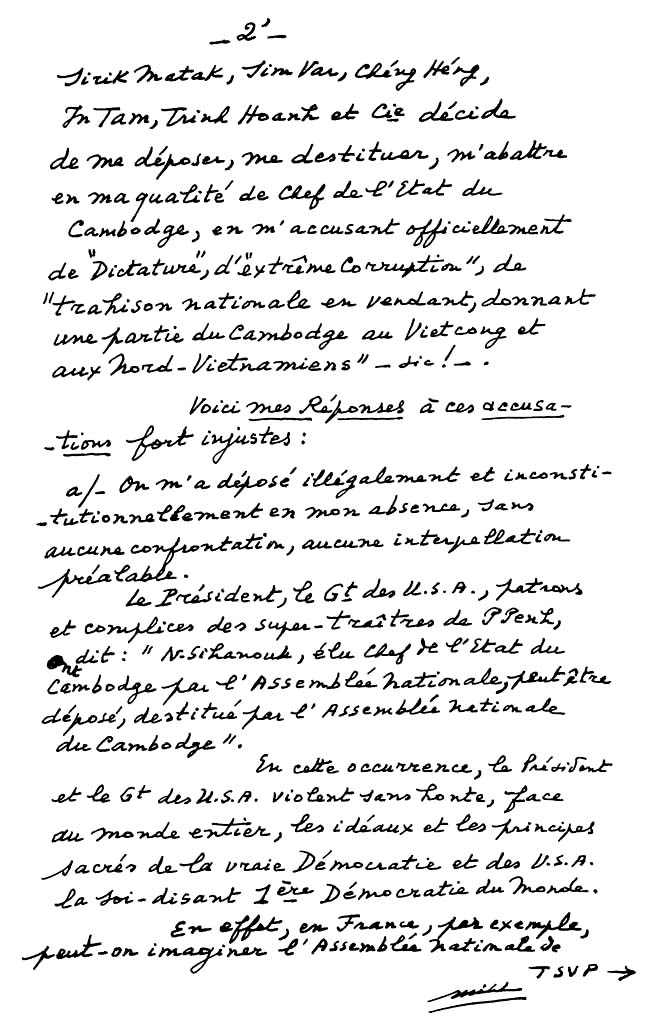 – 2' –
Sirik Matak, Sim Var, Chéng Héng,
In Tam, Trinh Hoanh et Cie décide
de me déposer, me destituer, m'abattre
en ma qualité de Chef de l'Etat du
Cambodge, en m'accusant officiellement
de "Dictature", d'"extrême Corruption", de
"trahison nationale en vendant, donnant
une partie du Cambodge au Vietcong et
aux Nord-Vietnamiens" – sic! – .
Voici mes Réponses à ces accusa-
-tions fort injustes :
a/- On m'a déposé illégalement et inconsti-
-tutionnellement en mon absence, sans
aucune confrontation, aucune interpellation
préalable.
Le Président, le Gt des U.S.A., patrons
et complices des super-traîtres de P Penh,
ont dit : " N. Sihanouk, élu Chef de l'Etat du
Cambodge par l'Assemblée Nationale, peut être
déposé, destitué par l'Assemblée Nationale
du Cambodge".
En cette occurrence, le Président
et le Gt des U.S.A. violent sans honte, face
au monde entier, les idéaux et les principes
sacrés de la vraie Démocratie et des U.S.A.
la soi-disant 1ère Démocratie du Monde.
En effet, en France, par exemple,
peut-on imaginer l'Assemblée Nationale de
TSVP →